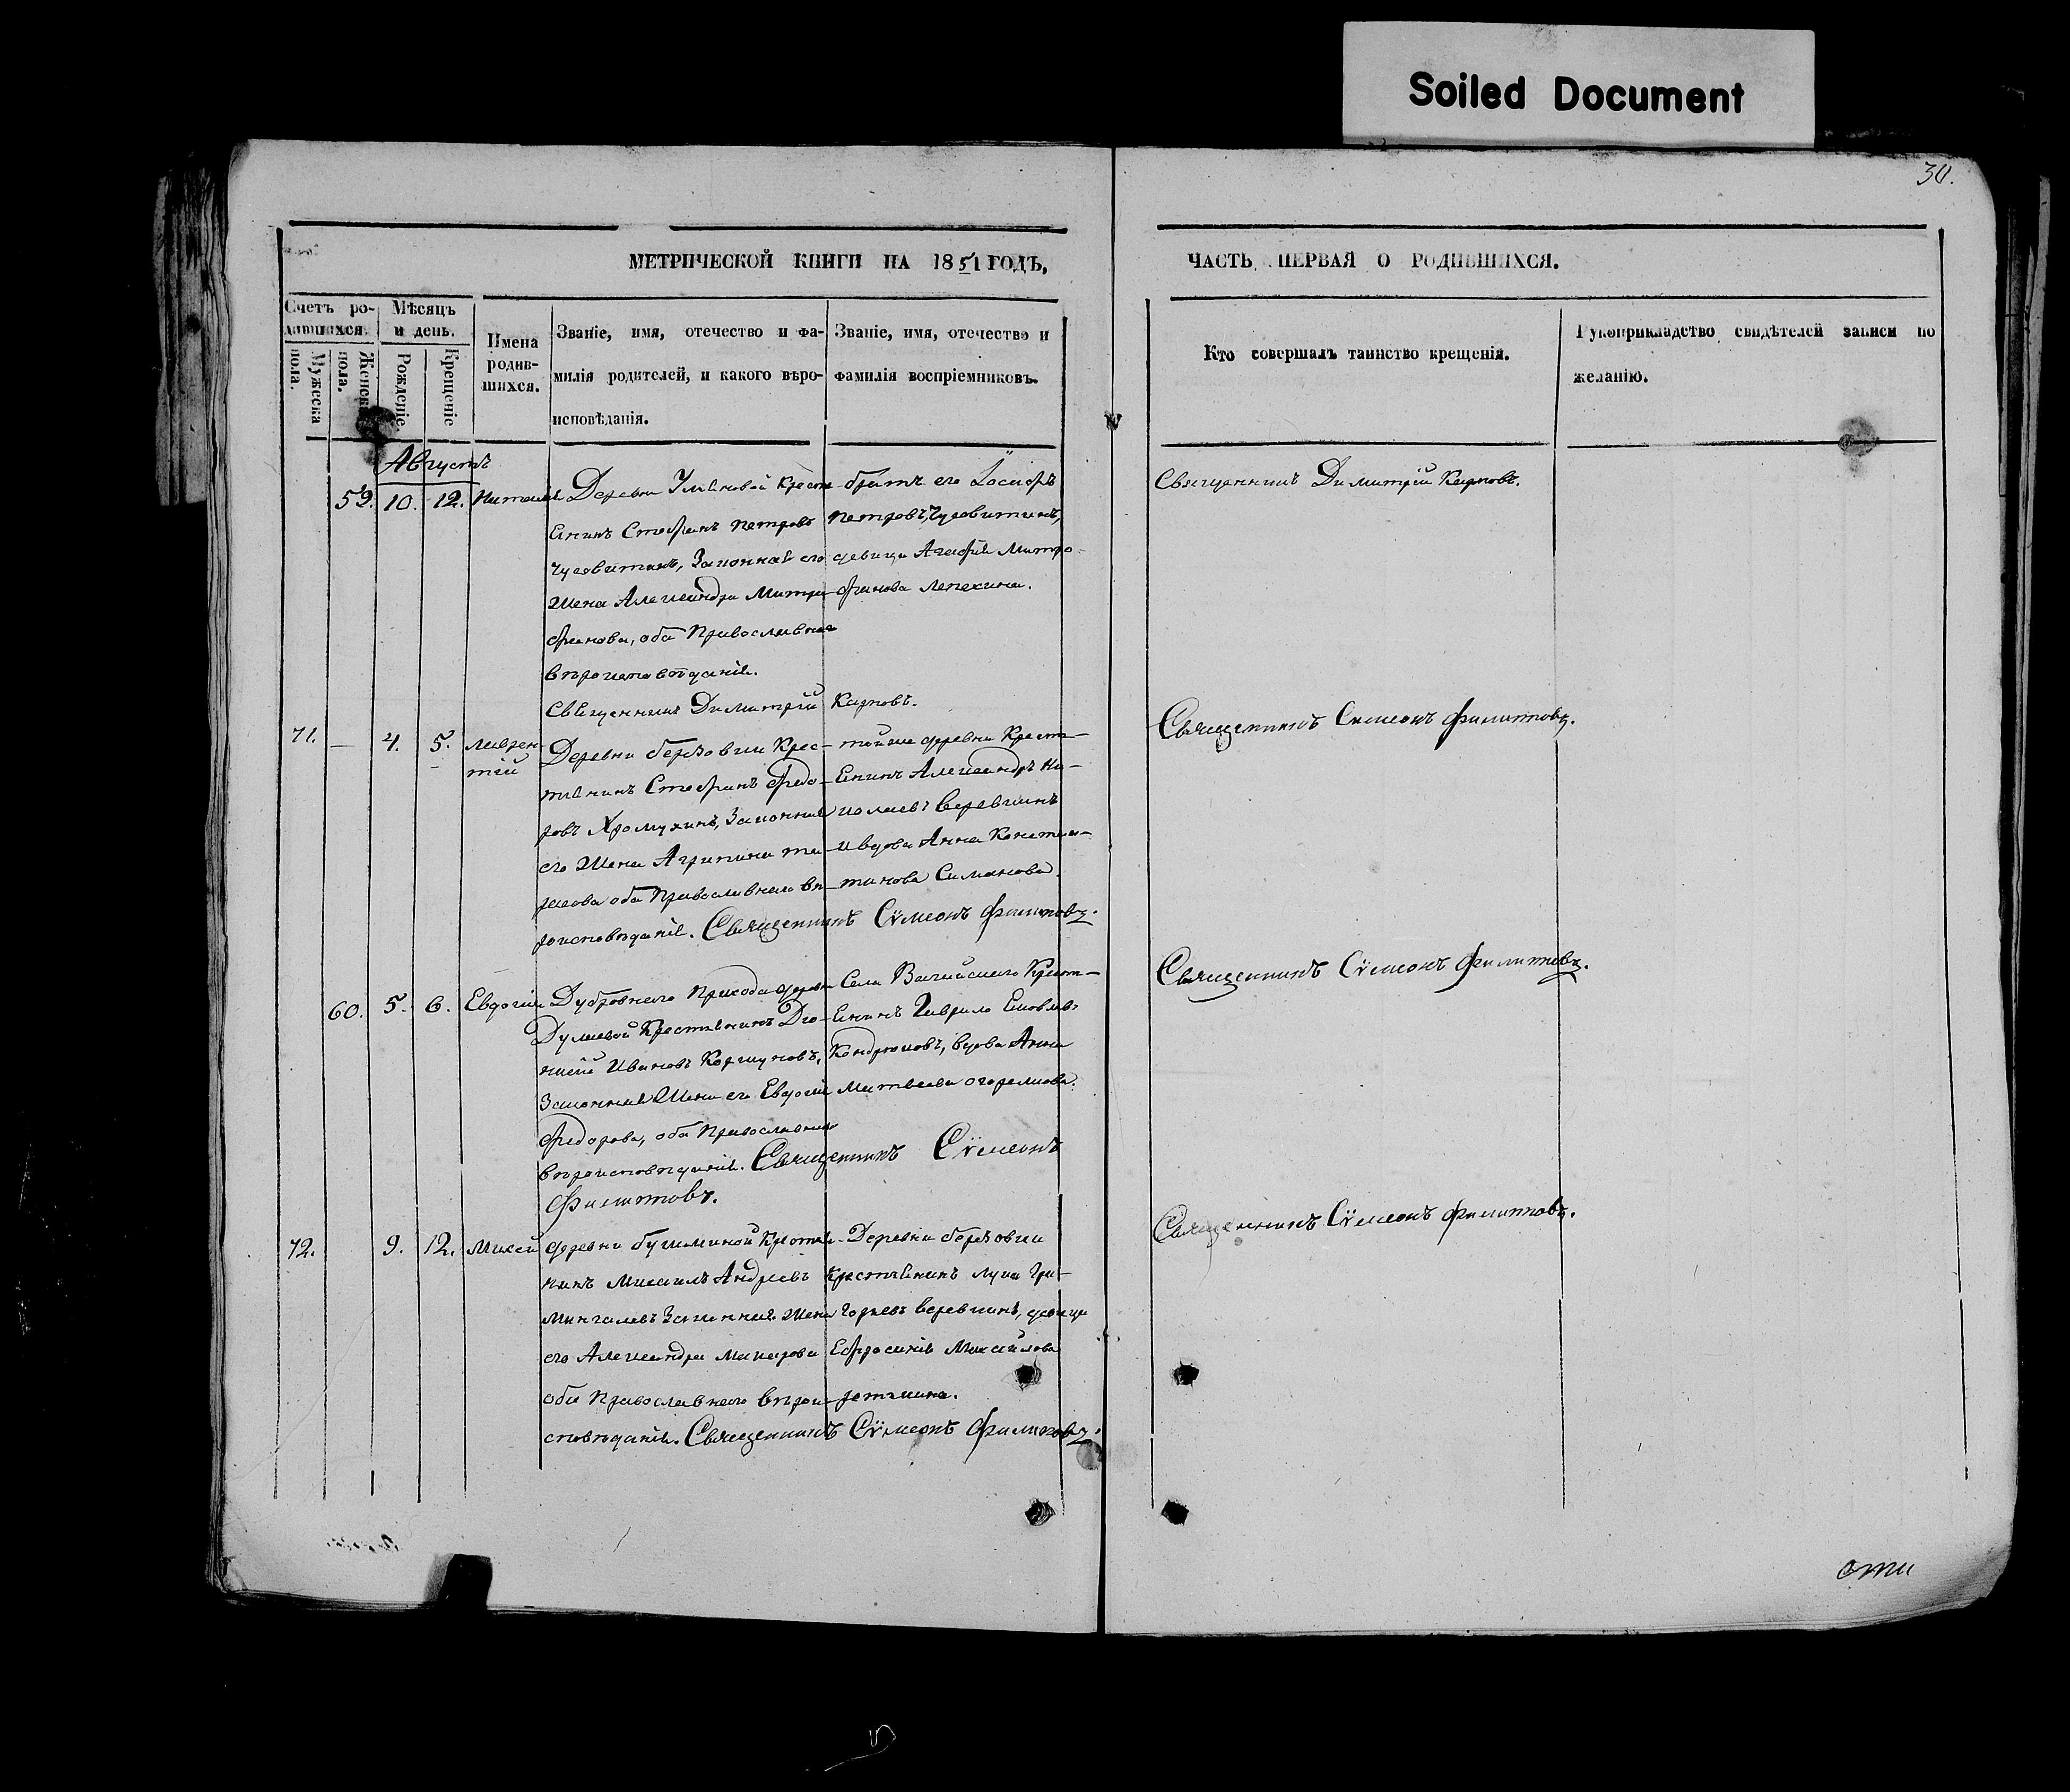 Soiled Document
30.
МЕТРИЧЕСКОЙ КНИГИ НА 1851 ГОДЪ,
ЧАСТЬ ПЕРВАЯ О РОДИВШИХСЯ.
Счетъ ро-
дившихся.
Мужеска
пола.
Женска
пола.
Мѣсяцъ
и день.
Рожденіе
Крещеніе
Имена
родив-
шихся.
Званіе, имя, отечество и фа-
милія родителей, и какого вѣро-
исповѣданія.
Званіе, имя, отечество и
фамилія воспріемниковъ.
Кто совершалъ таинство крещенія.
Рукоприкладство свидѣтелей записи по
желанію.
Августъ
59. 10. 12. Наталія
Деревни Крестя
янинъ Стефанъ Петровъ
Чусовитинъ, Законная его
Жена Александра Митро
фанова, оба Православнаго
вѣроисповѣданія.
Священникъ Димитрій Карповъ.
братъ его Іосифъ
Петровъ, Чусовитинъ,
девица Агафія Митро-
фанова Лепехина.
Священникъ Димитрій Карповъ.
71. — 4. 5. Лаврен-
тій
Деревни березовки Крес-
тянинъ Стефанъ Федо-
ровъ Хромухинъ, Законная
его Жена Агрипина та-
расова оба Православнаго вѣ-
роисповѣданія. Священникъ Сүмеонъ Филиповъ.
тойже деревни Крестя-
янинъ Александръ Ни-
колаевъ Веревкинъ
и вдова Анна Констан-
тинова Симанова.
Священникъ Симеонъ Филиповъ.
60. 5. 6. Евдогія
Дубровнаго Прихода деревни
Крестьянинъ Дио-
нисій Ивановъ Коршуновъ,
Законная Жена его Евдогія
Федорова, оба Православнаго
вѣроисповѣданія. Священникъ Сүмеонъ
Филиповъ.
Села Вагайскаго Крест-
янинъ Гаврило
Кондрюковъ, вдова Анна
Матвеева огорелкова.
Священникъ Сүмеонъ Филиповъ.
72. 9. 12. Михей
деревни бушминой Крестья-
нинъ Михаилъ Андреевъ
Мингалевъ Законная Жена
его Александра Макарова
оба Православнаго вѣрои-
сповѣданія. Священникъ Сүмеонъ Филиповъ.
Деревни березовки
Крестьянинъ лука Гри-
горьевъ веревкинъ, девица
Ефросинія Михайлова
Священникъ Сүмеонъ Филиповъ.